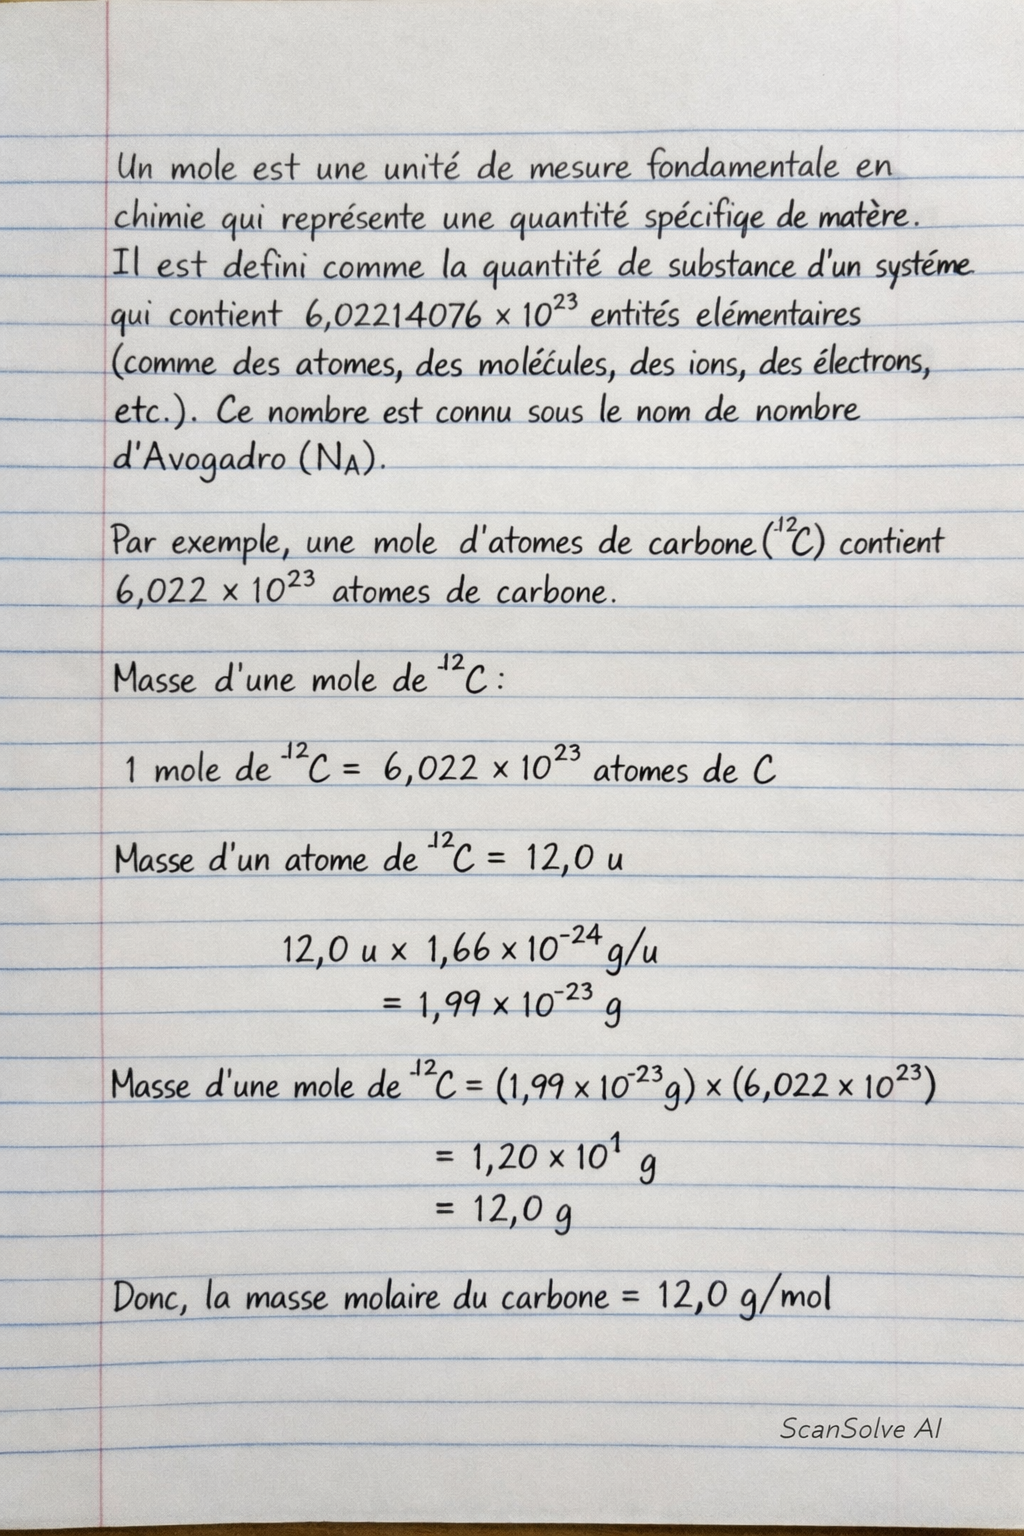 Un mole est une unité de mesure fondamentale en
chimie qui représente une quantité spécifiqe de matère.
Il est defini comme la quantité de substance d'un systéme
qui contient 6,02214076 × 10²³ entités elémentaires
(comme des atomes, des moléćules, des ions, des électrons,
etc.). Ce nombre est connu sous le nom de nombre
d'Avogadro (N_A).
Par exemple, une mole d'atomes de carbone (¹²C) contient
6,022 × 10²³ atomes de carbone.
Masse d'une mole de ¹²C :
1 mole de ¹²C = 6,022 × 10²³ atomes de C
Masse d'un atome de ¹²C = 12,0 u
12,0 u × 1,66 × 10⁻²⁴ g/u
= 1,99 × 10⁻²³ g
Masse d'une mole de ¹²C = (1,99 × 10⁻²³ g) × (6,022 × 10²³)
= 1,20 × 10¹ g
= 12,0 g
Donc, la masse molaire du carbone = 12,0 g/mol
ScanSolve AI